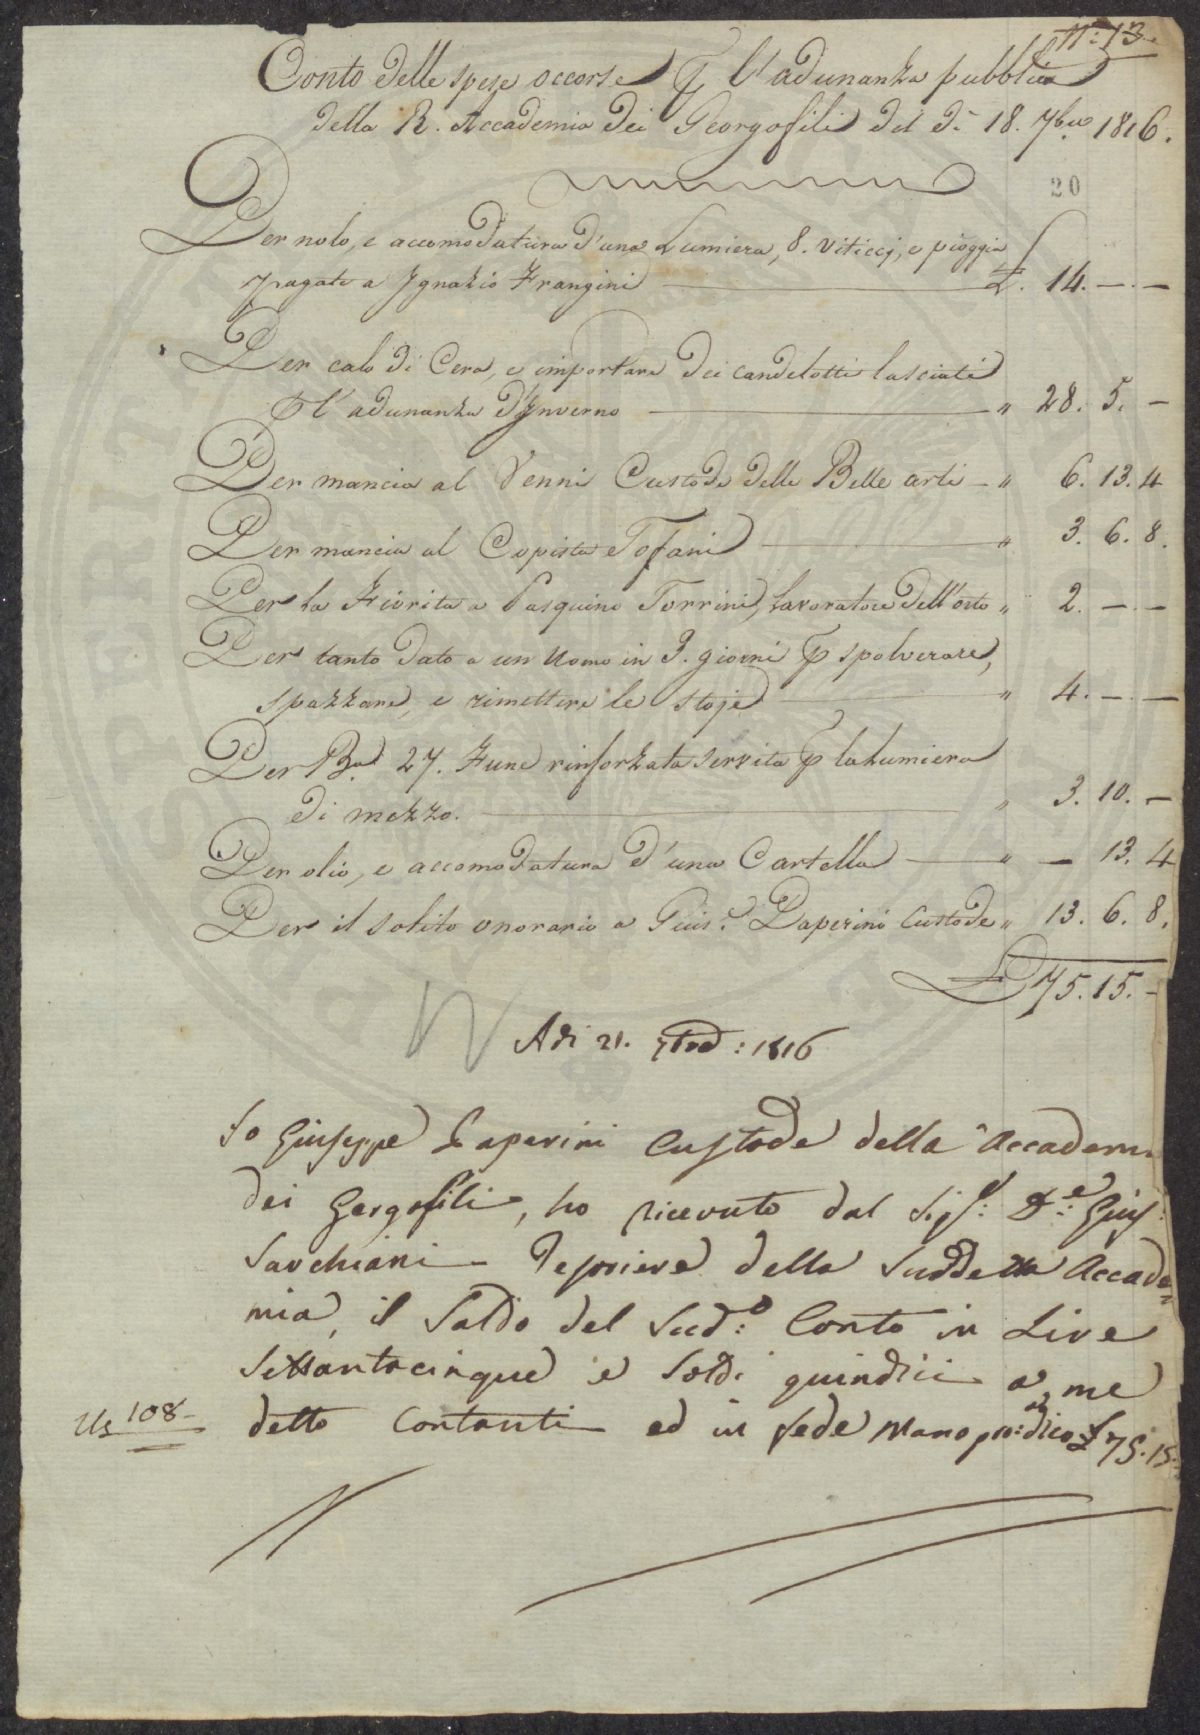 N.° 13.
Conto delle spese occorse P l'adunanza pubblica
della R. Accademia dei Georgofili del dì 18. 7bre 1816.
20
Per nolo, e accomodatura d'una Lumiera, 8. Viticcj, e pioggia
pagate a Ignazio Frangini £. 14. — . —
Per calo di Cera, e importare dei candelotti lasciati
P l'adunanza d'Inverno " 28. 5. —
Per mancia al Venni Custode delle Belle arti — " 6. 13. 4
Per mancia al Copista Tofani " 3. 6. 8.
Per la Fiorita a Pasquino Torrini, lavoratore dell'orto " 2. — . —
Per tanto dato a un Uomo in 3. giorni P spolverare,
spazzare, e rimettere le stoje " 4. — . —
Per Ba 27. Fune rinforzata servita P la Lumiera
di mezzo. " 3. 10. —
Per olio, e accomodatura d'una Cartella " — 13. 4
Per il solito onorario a Gius.e Paperini Custode " 13. 6. 8.
£ 75. 15. —
Adi 21. : 1816
Io Giuseppe Paperini Custode della Accadem
dei Gergofili, ho ricevuto dal Sig.: D.e Gius:
Sarchiani Tesoriere della Suddetta Accade=
mia, il Saldo del Sud:o Conto in Lire
Settantacinque e Soldi quindici a me
detto Contanti ed in fede Mano pro: dico £ 75. 15.
Us 108